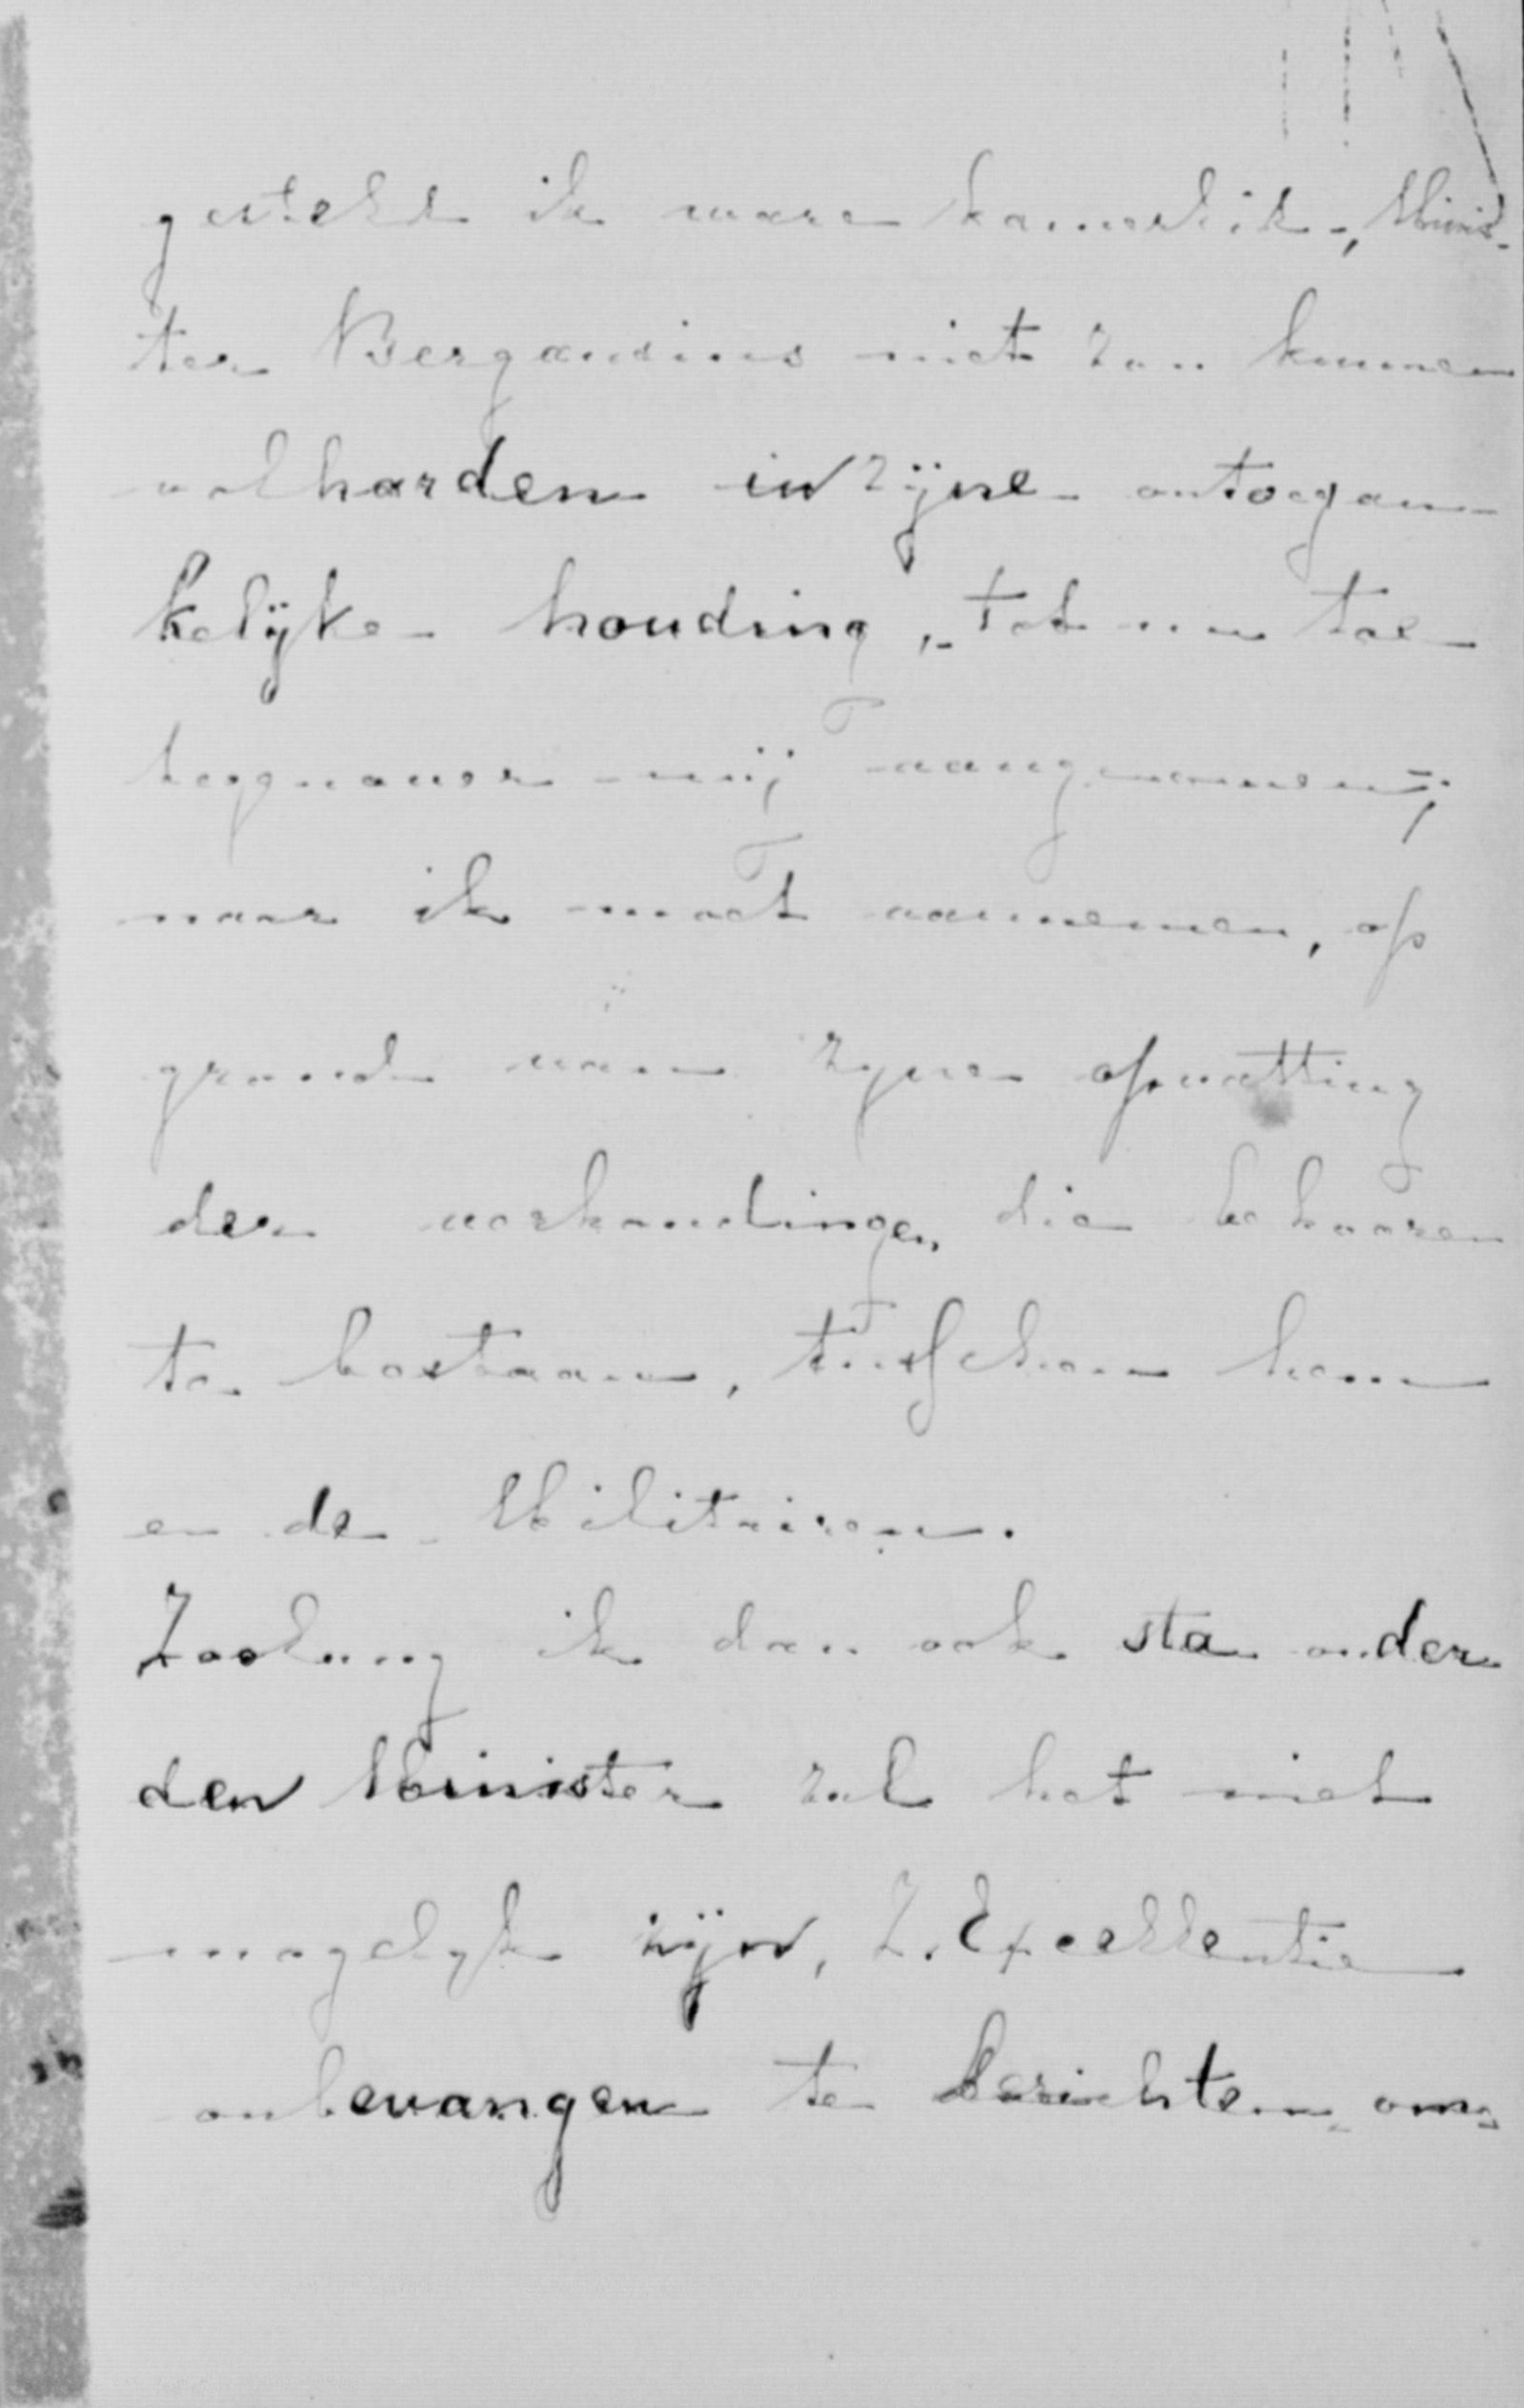 gesteld ik ware kamerlid, Minis-
ter Bergansius niet zou kunnen
volharden in zijne ontoegan-
kelijke houding, tot nu toe
tegenover mij aangenomen,
naar ik moet aannemen, op
grond van zyne opvatting
der verhoudingen die behooren
te bestaan, tusschen hem
en de Militairen.
Zoolang ik dan ook sta onder
den Minister zal het niet
mogelyk zijn, Z. Excellentie
onbevangen te berichten om-